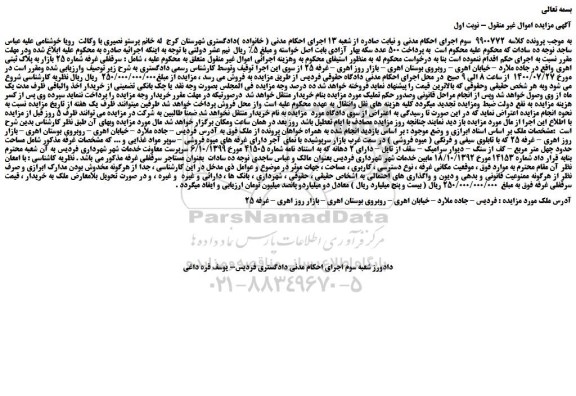 بسمه تعالی
آگهی مزایده اموال غیر منقول – نوبت اول
به موجب پرونده کلاسه 9900772 سوم اجرای احکام مدنی و نیابت صادره از شعبه 13 اجرای احکام مدنی ( خانواده )دادگستری شهرستان کرج له خانم پرستو نصیری با وکالت رویا خوشنامی علیه عباس
ساجد توجه ده سادات که محکوم علیه محکوم است به پرداخت 500 عدد سکه بهار آزادی بابت اصل خواسته و مبلغ 5٪ ریال نیم عشر دولتی با توجه به اینکه اجرائیه صادره به محکوم علیه ابلاغ شده ودر مهلت
مقرر نسبت به اجرای حکم اقدام ننموده است بنا به درخواست محکوم له به منظور استیفای محکوم به وهزینه اجرائی اموال غیر منقول متعلق به محکوم علیه ، شامل : سرقفلی غرفه شماره 25 بازار به پلاک ثبتی
اهری واقع در جاده ملارد – خیابان اهری – روبروی بوستان اهری – بازار روز اهری – غرفه 25 از سوی این اجرا توقیف وتوسط کارشناس رسمی دادگستری به شرح زیر توصیف وارزیابی شده ومقرر است در
مورخ 1400/07/27 از ساعت 8 الی 9 صبح در محل اجرای احکام مدنی دادگاه حقوقی فردیس از طریق مزایده به فروش می رسد ، مزایده از مبلغ 250/000/000/000 ریال نظریه کارشناسی شروع
می شود وبه هر شخص حقیقی وحقوقی که بالاترین قیمت را پیشنهاد نماید فروخته خواهد شد ده درصد وجه مزایده فی المجلس بصورت وجه نقد یا چک بانکی تضمینی از خریدار اخذ والباقی ظرف مدت یک
ماه از وی وصول خواهد شد وپس از انجام مراحل قانونی وصدور حکم تملیک مورد مزایده بنام خریدار منتقل خواهد شد درصورتیکه در مهلت مقرر خریدار وجه مزایده را پرداخت ننماید سپرده وی پس از کسر
هزینه مزایده به نفع دولت ضبط ومزایده تجدید میگردد کلیه هزینه های نقل وانتقال به عهده محکوم علیه است واز محل فروش پرداخت خواهد شد طرفین میتوانند ظرف یک هفته از تاریخ مزایده نسبت به
نحوه انجام مزایده اعتراض نماید که در این صورت تا رسیدگی به اعتراض از سوی دادگاه مورد مزایده به نام خریدار منتقل نخواهد شد ضمناً طالبین به شرکت در مزایده می توانند ظرف 5 روز قبل از مزایده
با اطلاع این اجرا از مال مورد مزایده باز دید نمایند چنانچه روز مزایده مصادف با ایام تعطیل باشد روزبعد در همان ساعت ومکان برگزار خواهد شد مال مورد مزایده وبهای آن طبق نظر کارشناس بدین شرح
است :مشخصات ملک بر اساس اسناد ابرازی و وضع موجود : بر اساس بازدید انجام شده به همراه خواهان پرونده از ملک فوق به آدرس فردیس – جاده ملارد – خیابان اهری – روبروی بوستان اهری – بازار
روز اهری – غرفه 25 که با تابلوی سیفی و فرنگی ( میوه فروشی ) در سمت غرب بازار سرپوشیده با نمای آجر دارای غرفه های میوه فروشی – سوپر مواد غذایی و ... که مشخصات غرفه مذکور شامل مساحت
حدود چهل متر مربع – کف از سنگ – دیوار سرامیک – سقف از تایل – دارای 2 دهانه که به استناد نامه شماره 41505 مورخ 6/10/1399 سرپرست معاونت خدمات شهر شهرداری فردیس به آن شعبه محترم
بنابه قرار داد شماره 14153 مورخ 18/10/1392 مابین خدمات شهر شهرداری فردیس بعنوان مالک و عباس ساجدی توجه ده سادات بعنوان مستاجر سرقفلی غرفه مذکور می باشد . نظریه کارشناسی : با امعان
نظر آن مقام محترم به موارد فوق ، موقعیت مکانی غرفه ، نوع دسترسی ، کاربری ، مساحت ، جهات میثر در موضوع و عوامل ذی مدخل در این کارشناسی ، جدا از هرگونه مخدوش بودن مدارک ابرازی و صرفه
نظر از هرگونه ممنوعیت قانونی و بدهی و دیون و واگذاری های احتمالی به اشخاص حقیقی ، حقوقی ، شهرداری ، بانک ها ، دارائی و غیره و غیره ، و در صورت تحویل بلامعارض ملک به خریدار ، قیمت
سرقفلی غرفه فوق به مبلغ 250/000/000/000 ریال ( بیست و پنج میلیارد ریال ) معادل دو میلیاردو پانصد میلیون تومان ارزیابی و ایفاد میگردد .
آدرس ملک مورد مزایده : فردیس – جاده ملارد – خیابان اهری – روبروی بوستان اهری – بازار روز اهری – غرفه 25
دادورز شعبه سوم اجرای احکام مدنی دادگستری فردیس– یوسف قره داغی
ParsNamadData
۰۲۱-۸۸۳۴۹۶۷۰-۵